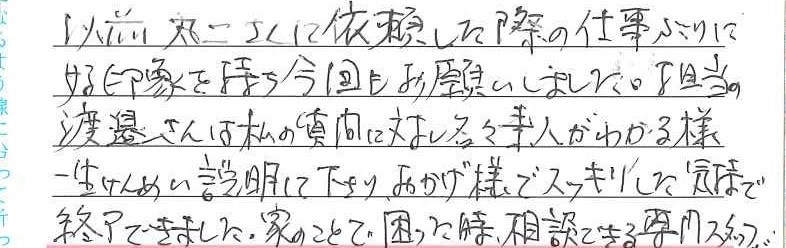 以前丸二さんに依頼した際の仕事ぶりに
好印象を持ち今回もお願いしました。担当の
渡邉さんは私の質問に対し 々素人がわかる様
一生けんめい説明して下さり、おかげ様でスッキリした気持で
終了できました。家のことで困った時、相談できる専門スタッフが